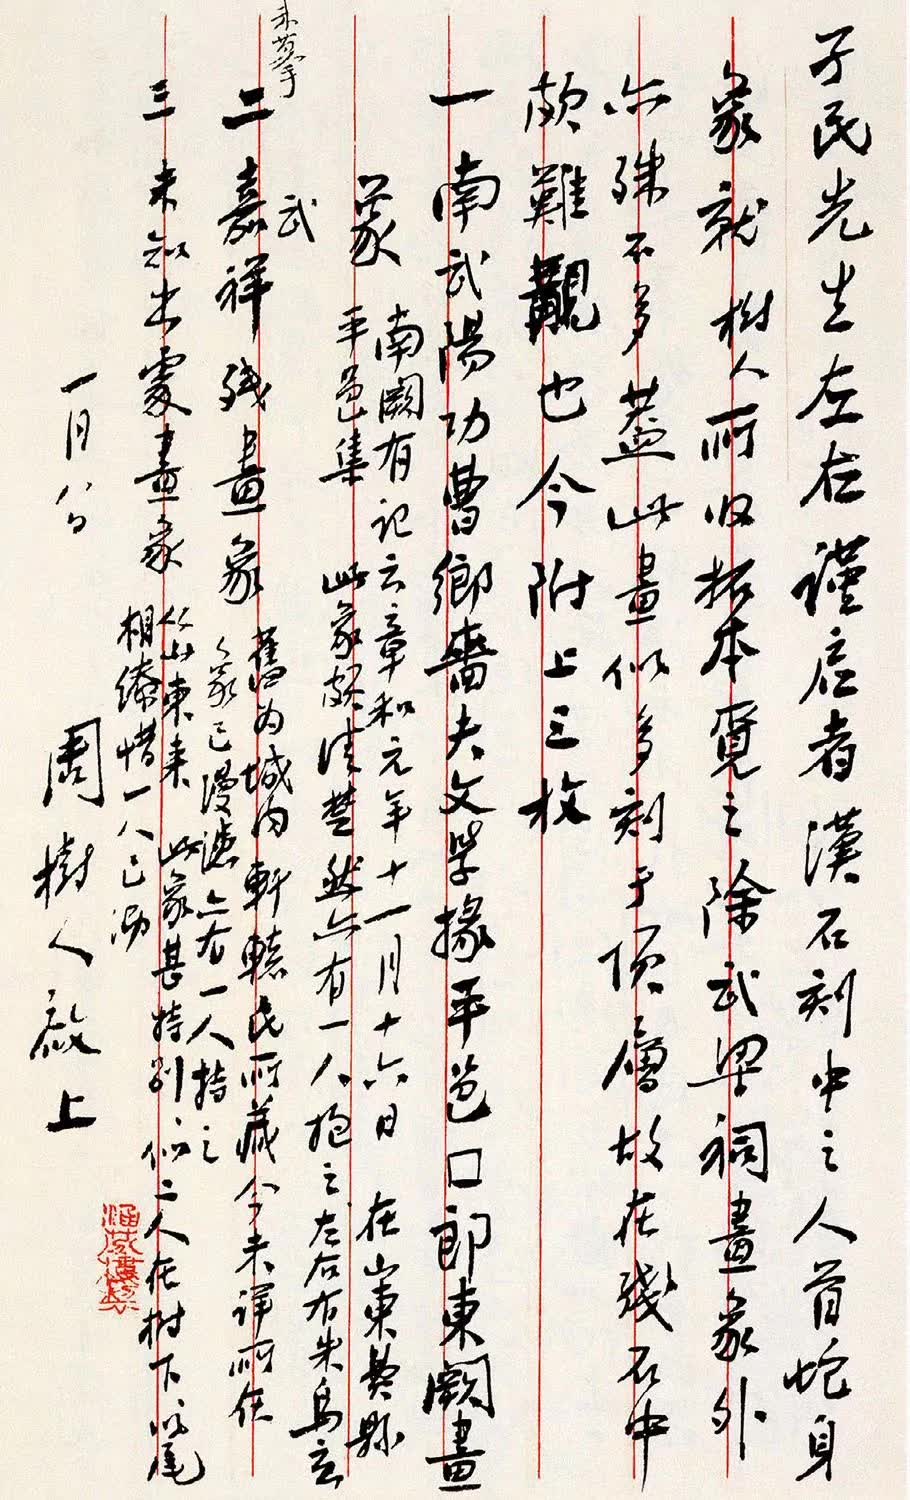 孑民先生左右謹启者漢石刻中之人首蛇身
象就 樹人所收拓本覓之除武梁祠畫象外
亦殊不多蓋此畫似多刻于頂層故在殘石中
頗難覯也今附上三枚
一 南武陽功曹鄉嗇夫文學掾平邑□郎東闕畫
象 南闕有記云章和元年十一月十六日 在山東費縣
平邑集 此象頗清楚然亦有一人抱之左右有朱鳥玄
武
二 嘉祥殘畫象 舊为城内軒轅氏所藏今未詳所在
象已漫漶亦有一人持之
三 未知出處畫象 从山東来 此象甚特别似二人在樹下以尾
相繚惜一人已泐
一月八日
周樹人啟上